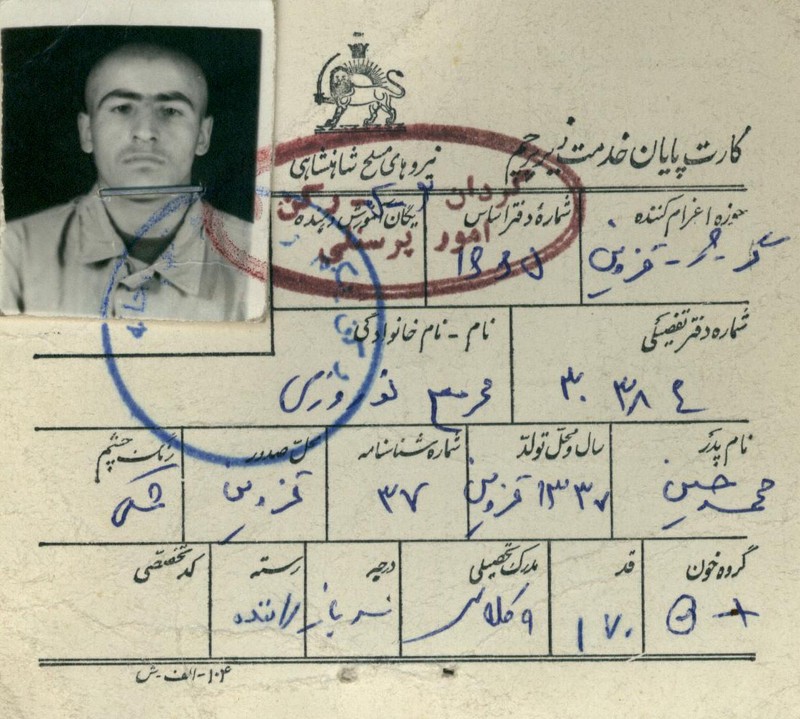 کارت پایان خدمت زیر پرچم
نیروهای مسلح شاهنشاهی
حوزه اعزام کننده
شمارهٔ دفتر اساس
یگان آموزش دیده
گردان رکن
امور پرسنلی
قزوین
شماره دفتر تفصیلی
نام - نام خانوادگی
محرم نوروزی
نام پدر
سال و محل تولد
شماره شناسنامه
محل صدور
رنگ چشم
محمد حسین
۱۳۳۷ قزوین
۳۷
قزوین
مشکی
گروه خون
قد
مدرک تحصیلی
درجه
رسته
کد تخصصی
O +
۱۷۰
۹ کلاس
سرباز
راننده
۱۰۴-الف-ش